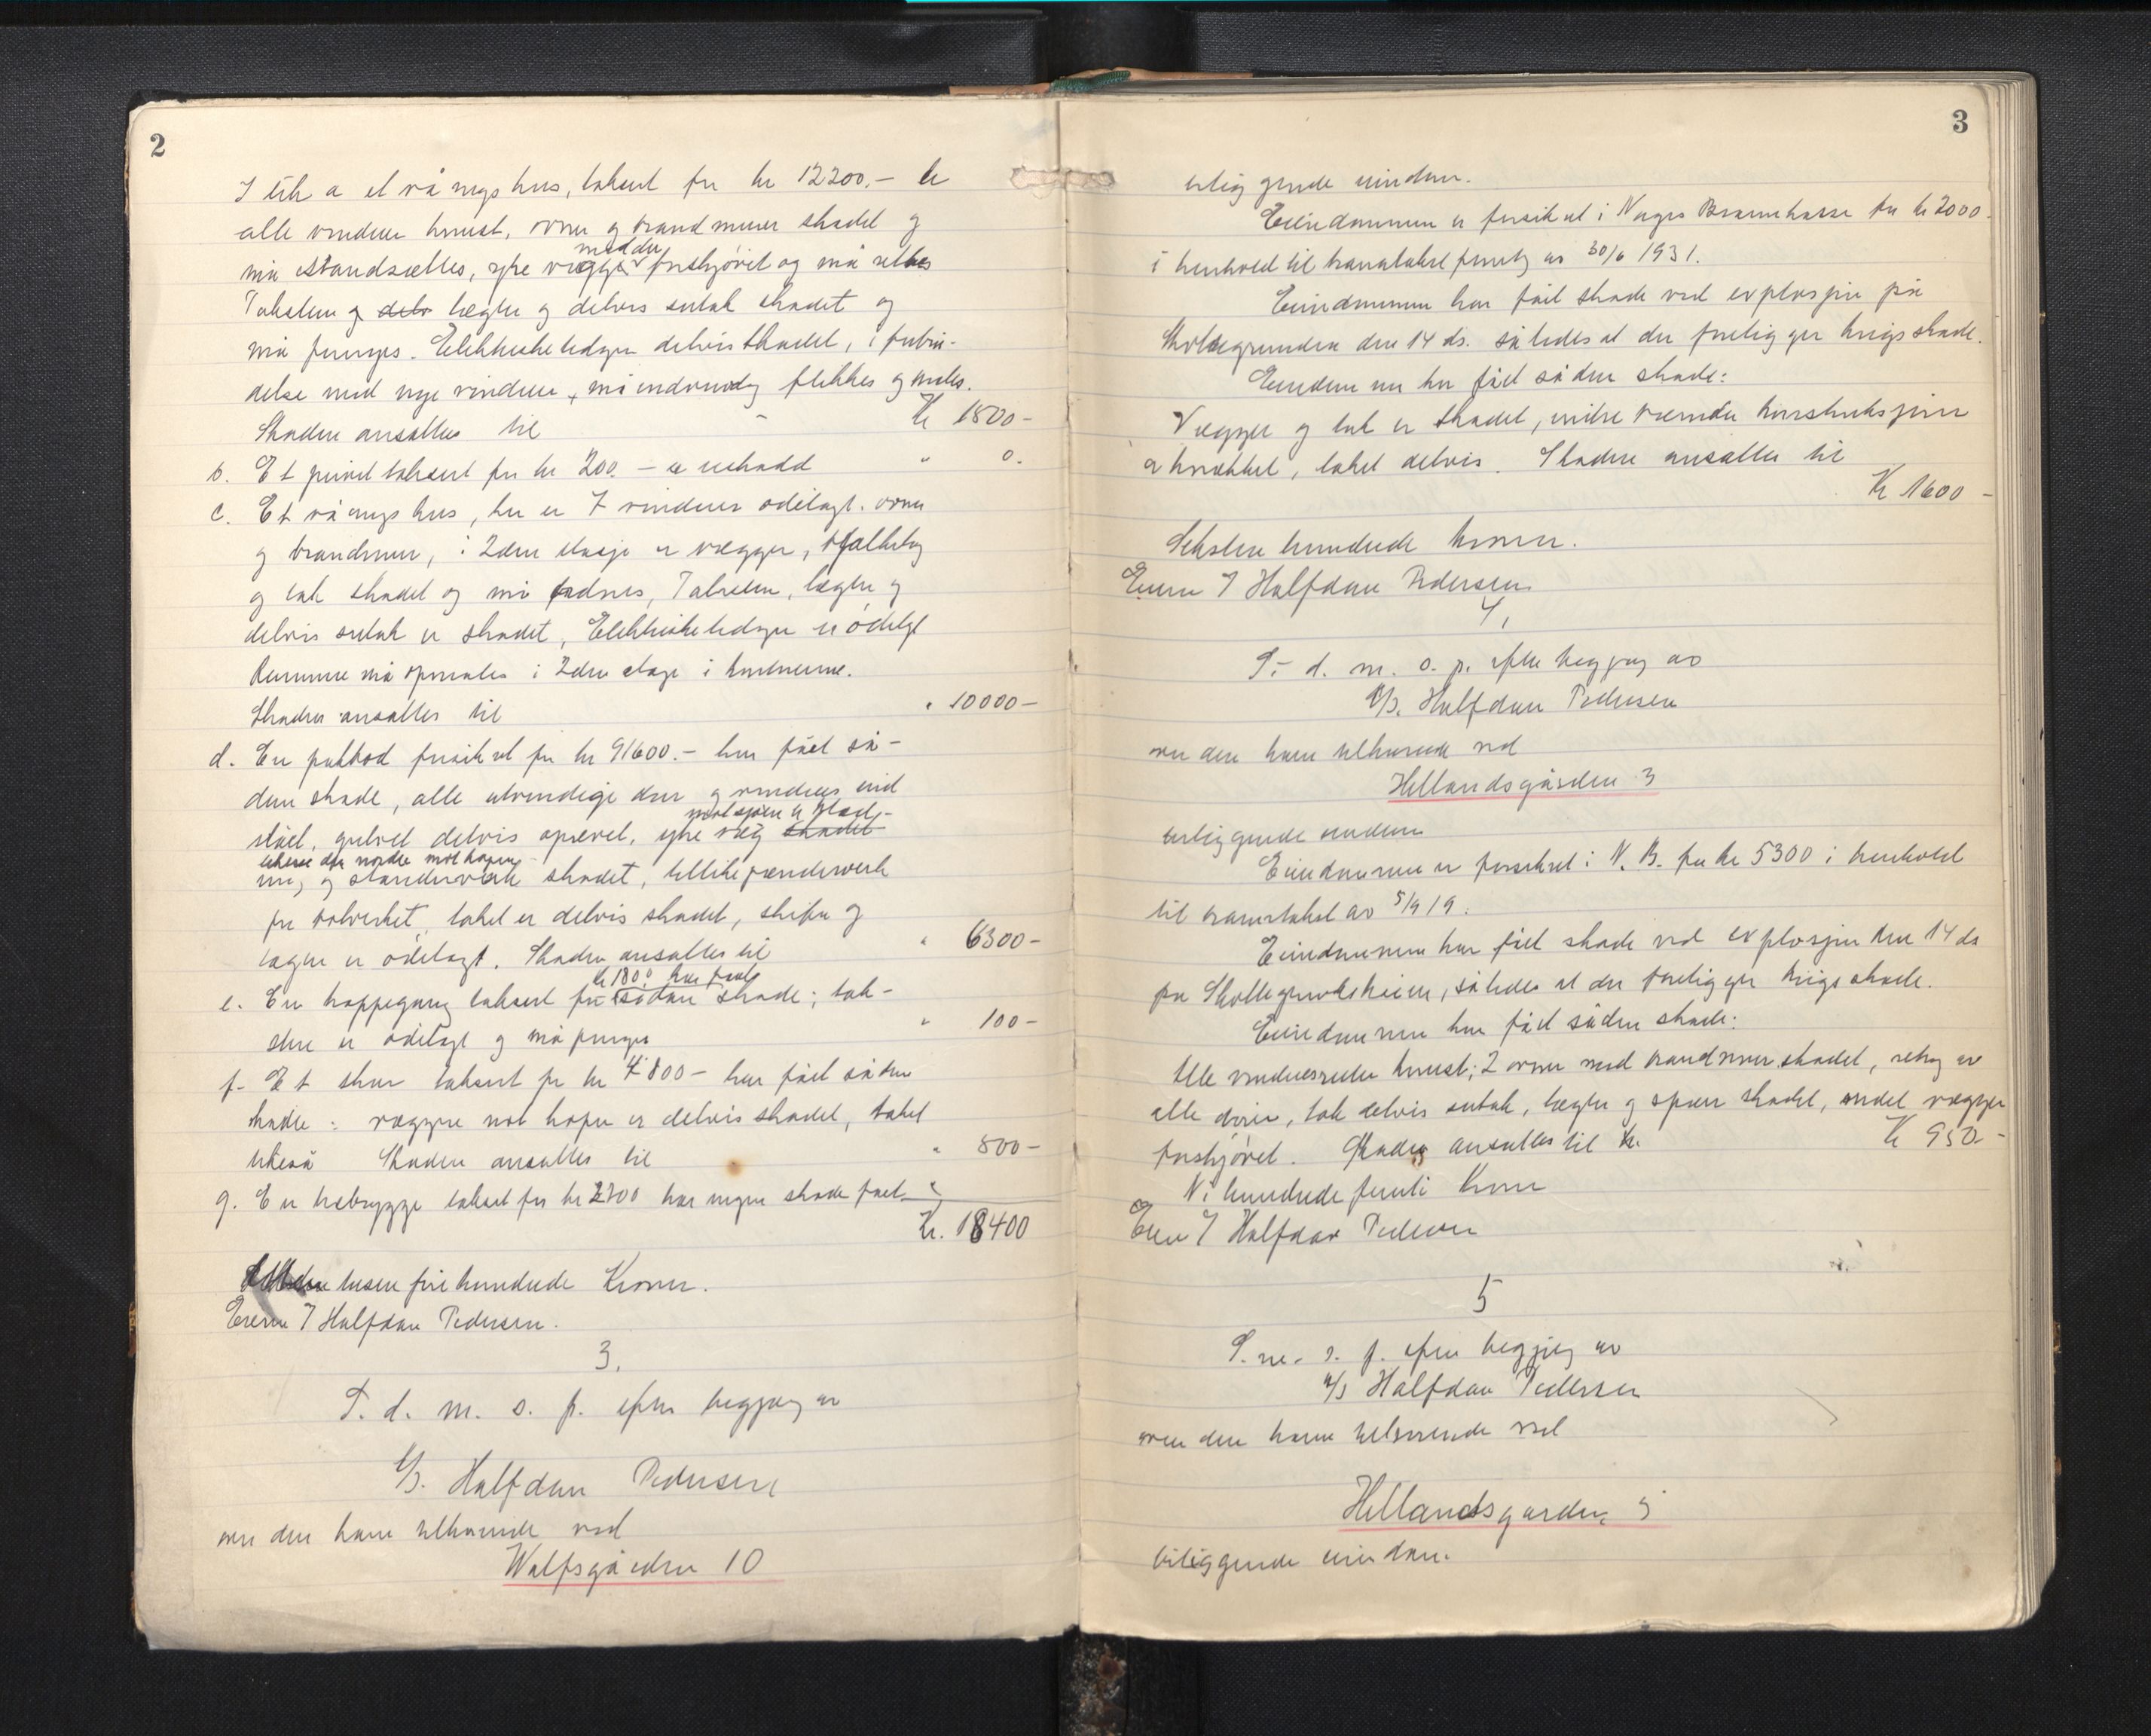 2
I tilk a et våningshus, taksert for kr 12200.- er
alle vinduer knust, ovner og brandmurer skadet og
må istandsættes, ytre vægger mot den forskjøvet og må rettes
Taksten og delv lægter og delvis sutak skadet og
må fornyes. Elektriske ledninger delvis skadet, i forbin-
delse med nye vinduer må indvendig flikkes og males.
Skaden ansættes til Kr 1500-
b. Et privet taksert for kr 200.- er uskadd " 0.
c. Et våningshus, her er 7 vinduer ödelagt. ovner
og brandmur, i 2den etasje er vægger, og
og tak skadet og må ordnes, Taksten, lægter og
delvis sutak er skadet, Elektriske ledninger er ödelagt
Rummene må opmales i 2den etage i
Skaden ansættes til " 10000-
d. En pakbod forsikret for kr 91600.- har fået så-
dan skade, alle utvendige dører og vinduer ind
slået, gulvet delvis oprevet, ytre væg skadet
og standerverk skadet, tillike pænderverk
for bolverket, taket er delvis skadet, skifer og
lægter er ödelagt. Skaden ansættes til " 6300-
e. En trappegang taksert for kr 1800 har fået sådan skade; tak-
stene er ödelagt og må fornyes " 100-
f. Et skur taksert for kr 4800- har fået sådan
skade: væggene mot havnen er delvis skadet, taket
likeså Skaden ansættes til " 500-
g. En træbrygge taksert for kr 2700 har ingen skade fået "
Kr. 18400
tusen fire hundrede Kroner.
Eieren I Halfdan Pedersen.
3.
S. d. m. o. f. efter begjæring av
A/S. Halfdan Pedersen
over den ham tilhørende ved
Wolfsgården 10
3
beliggende eiendom.
Eiendommen er forsikret i Norges Brannkasse for kr 2000-
i henhold til branntakst forretn av 30/6 1931.
Eiendommen har fået skade ved explosjon på
Skoltegrunden den 14 ds. således at der foreligger krigsskade.
Eiendommen har fået sådan skade:
Vægger og tak er skadet, indre bærende konstruksjoner
er knækket, taket delvis. Skaden ansættes til
Kr 1600-
Seksten hundrede kroner.
Eieren I Halfdan Pedersen
4,
S. d. m. o. f. efter begjæring av
A/S. Halfdan Pedersen
over den ham tilhørende ved
Hellandsgården 3
beliggende eiendom
Eiendommen er forsikret i N. B. for kr 5300 i henhold
til branntakst av 5/9 19.
Eiendommen har fået skade ved explosjon den 14 ds
på Skoltegrundskaien, således at der foreligger krigsskade.
Eiendommen har fået sådan skade:
Alle vinduesruter knust; 2 ovner med brandmur skadet, retning av
alle dører, tak delvis sutak, lægter og sperr skadet, endel vægger
forskjøvet. Skaden ansættes til kr. Kr 950-
Ni hundrede femti Kroner
Eier I Halfdan Pedersen
5
S. m. o. f. efter begjæring av
A/S Halfdan Pedersen
over den ham tilhørende ved
Hellandsgården 5
beliggende eiendom.